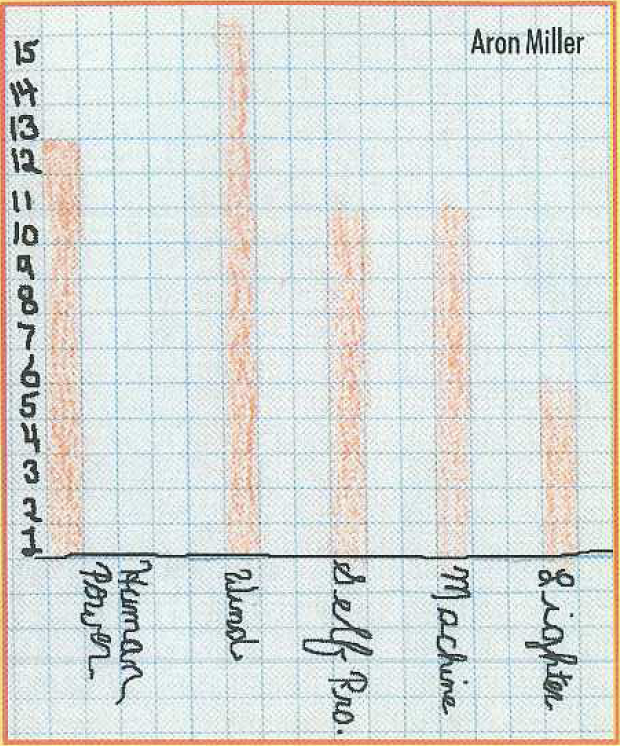 Aron Miller
15
14
13
12
11
10
9
8
7
6
5
4
3
2
1
Human
Power
Wind
Self Pro.
Machine
Lighter